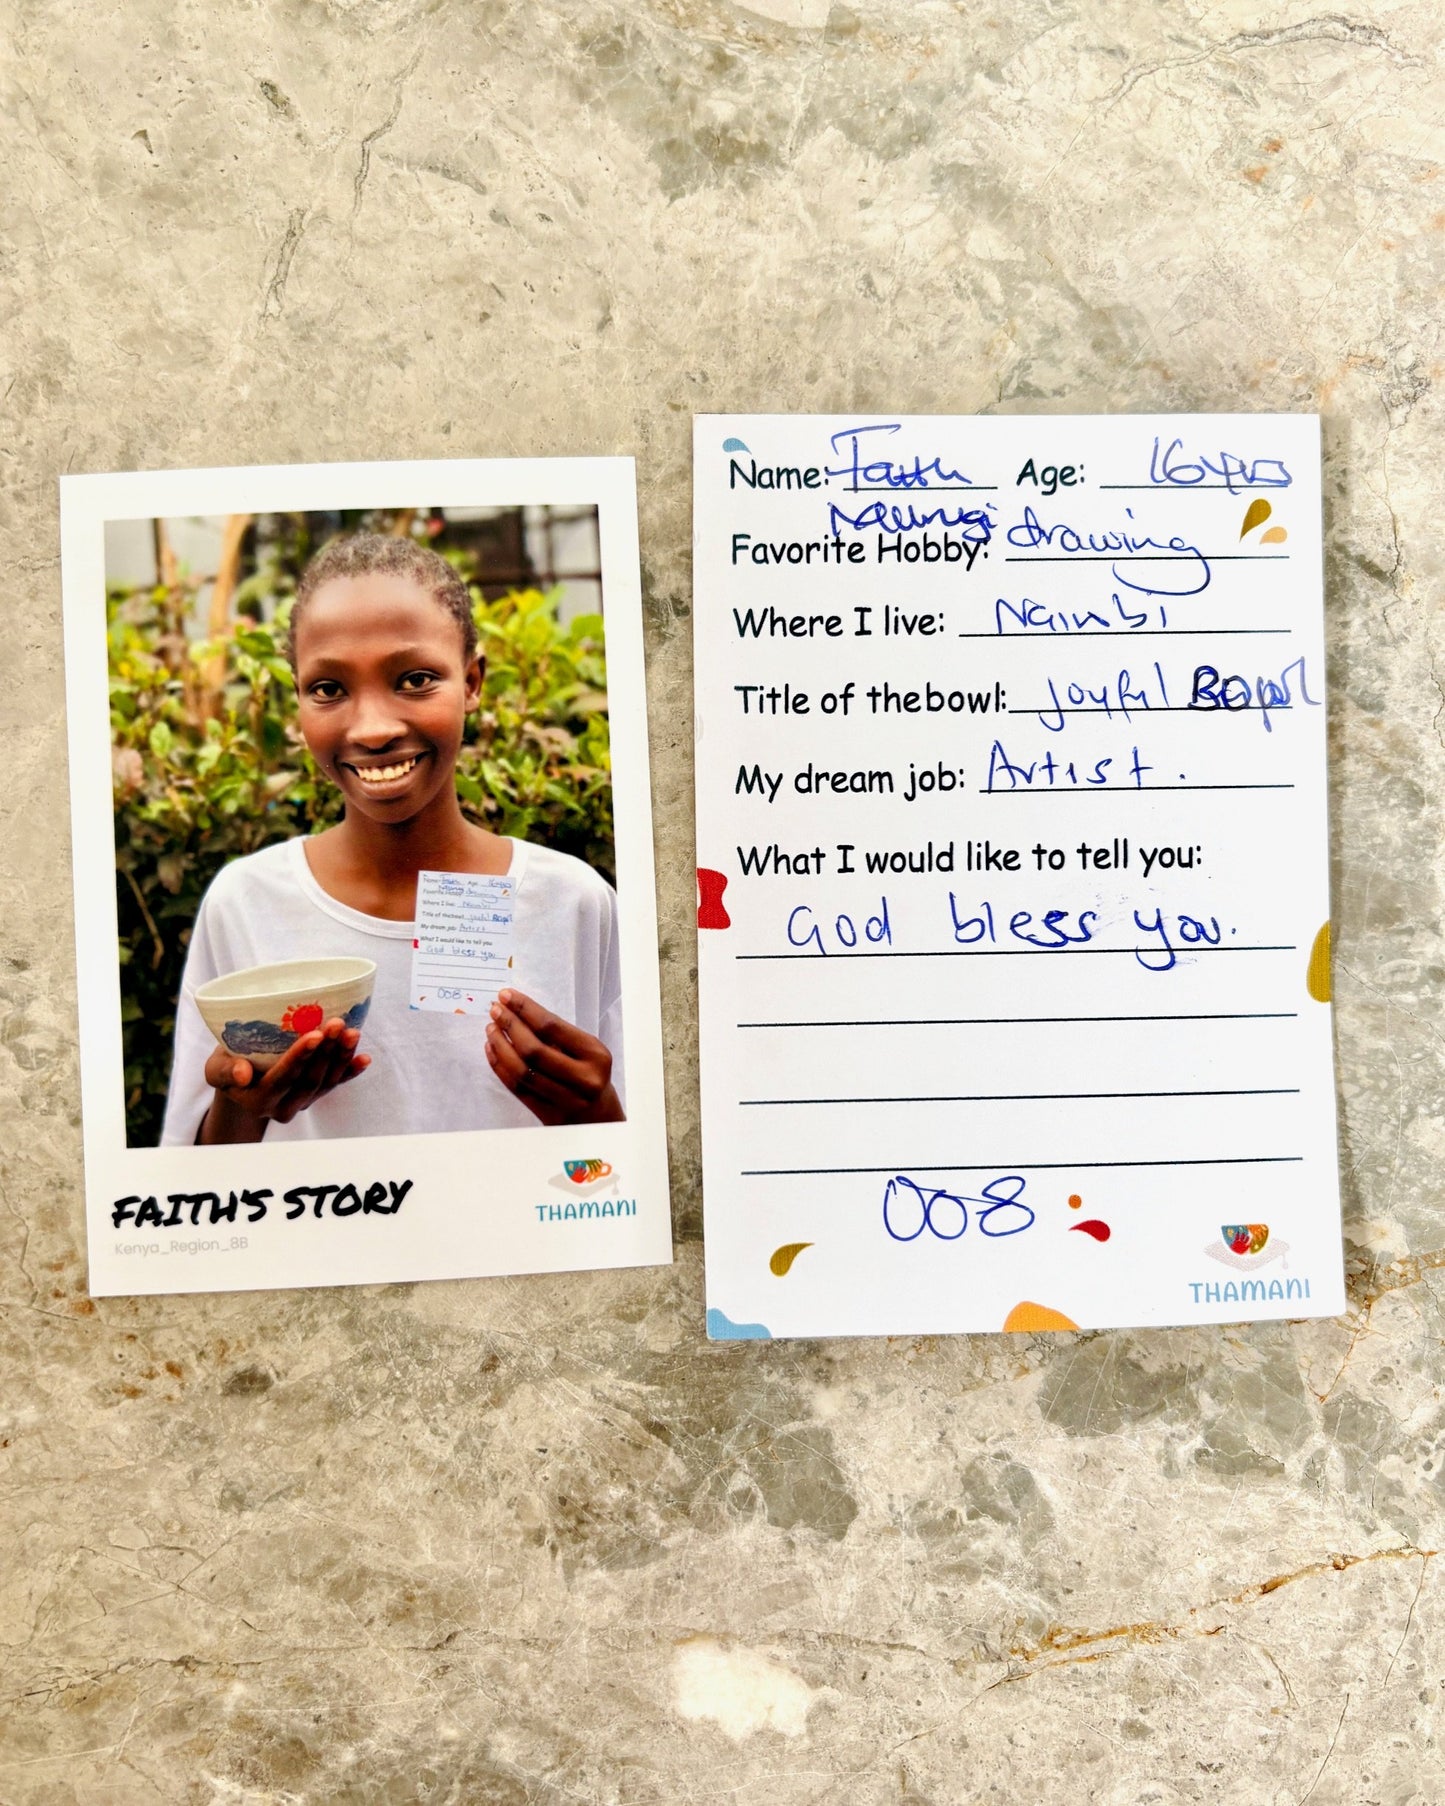 FAITH'S STORY
Kenya_Region_8B
THAMANI
Name: Faith Age: 16 yrs
Favorite Hobby: drawing
Where I live: Nairobi
Title of the bowl: Joyful Bowl
My dream job: Artist.
What I would like to tell you:
God bless you.
008
THAMANI